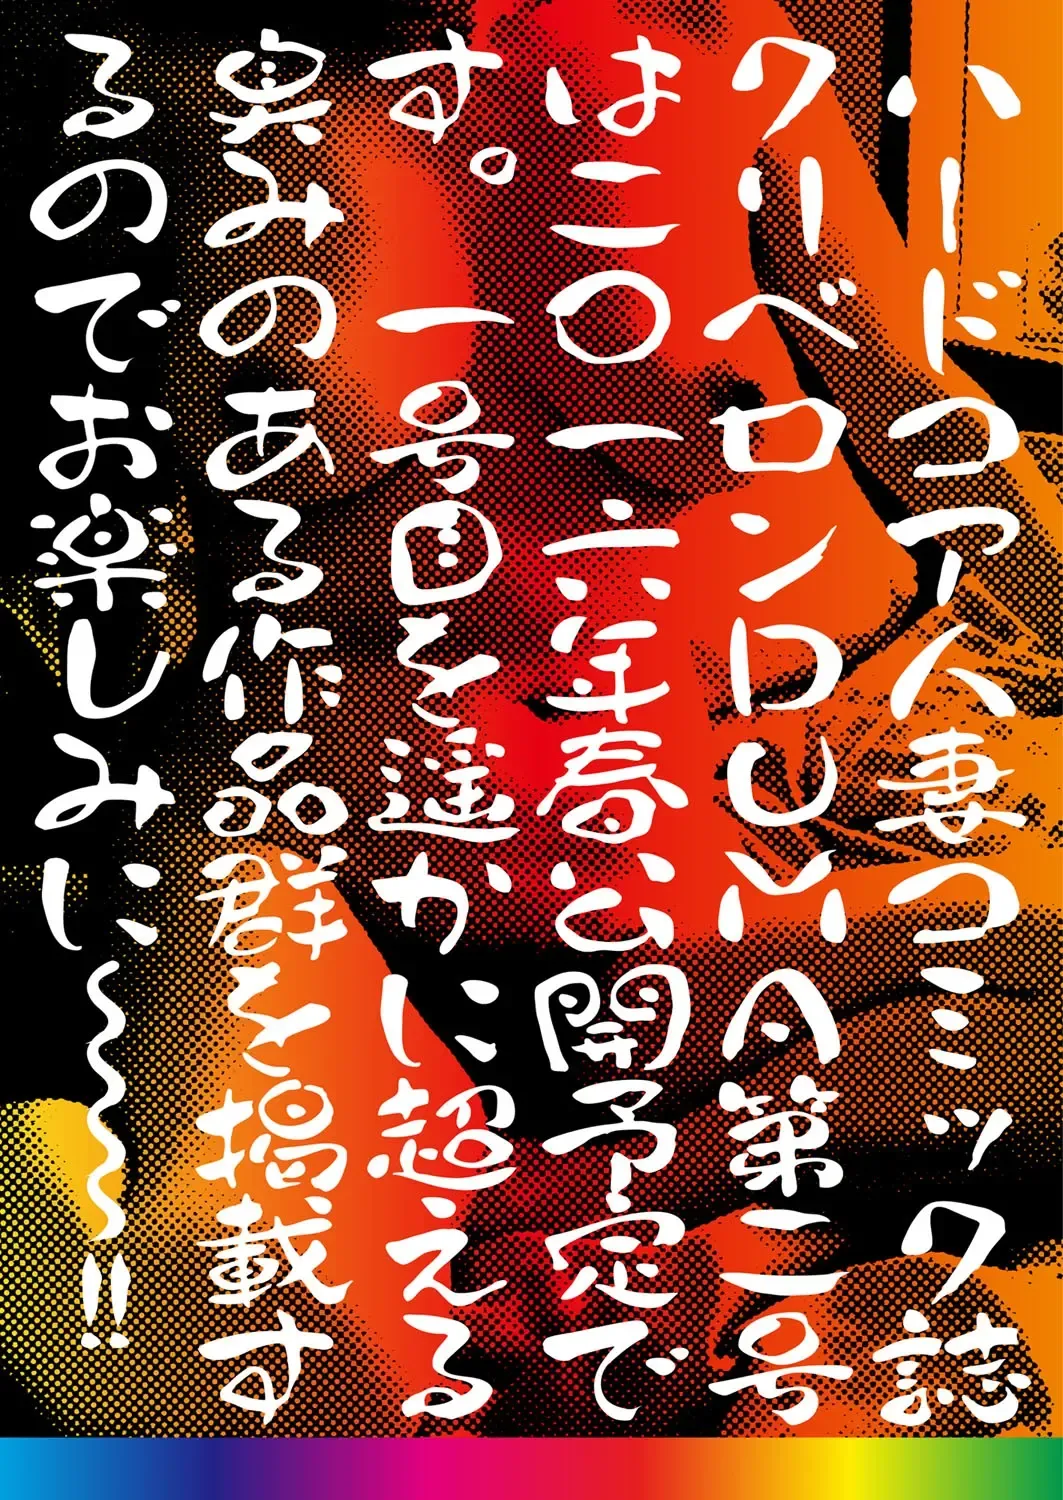 ハードコア人妻コミック誌
クリーベロンDUMA第二号
は二〇一六年春公開予定で
す。一号目を遥かに超える
臭みのある作品群を掲載す
るのでお楽しみに〜〜〜!!